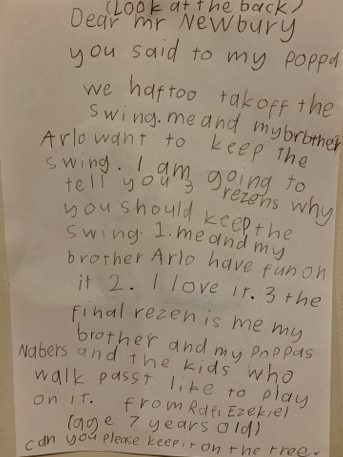 (Look at the back)
Dear mr Newbury
you said to my poppa
we haftoo takoff the
swing. me and my brother
Arlo want to keep the
swing. I am going to
tell you 3 rezens why
you should keep the
swing. 1. me and my
brother Arlo have fun on
it 2. I love it. 3 the
final rezen is me my
brother and my poppas
nabers and the kids who
walk passt like to play
on it. from Rafi Ezekiel
(age 7 years old)
can you please keep it on the tree.